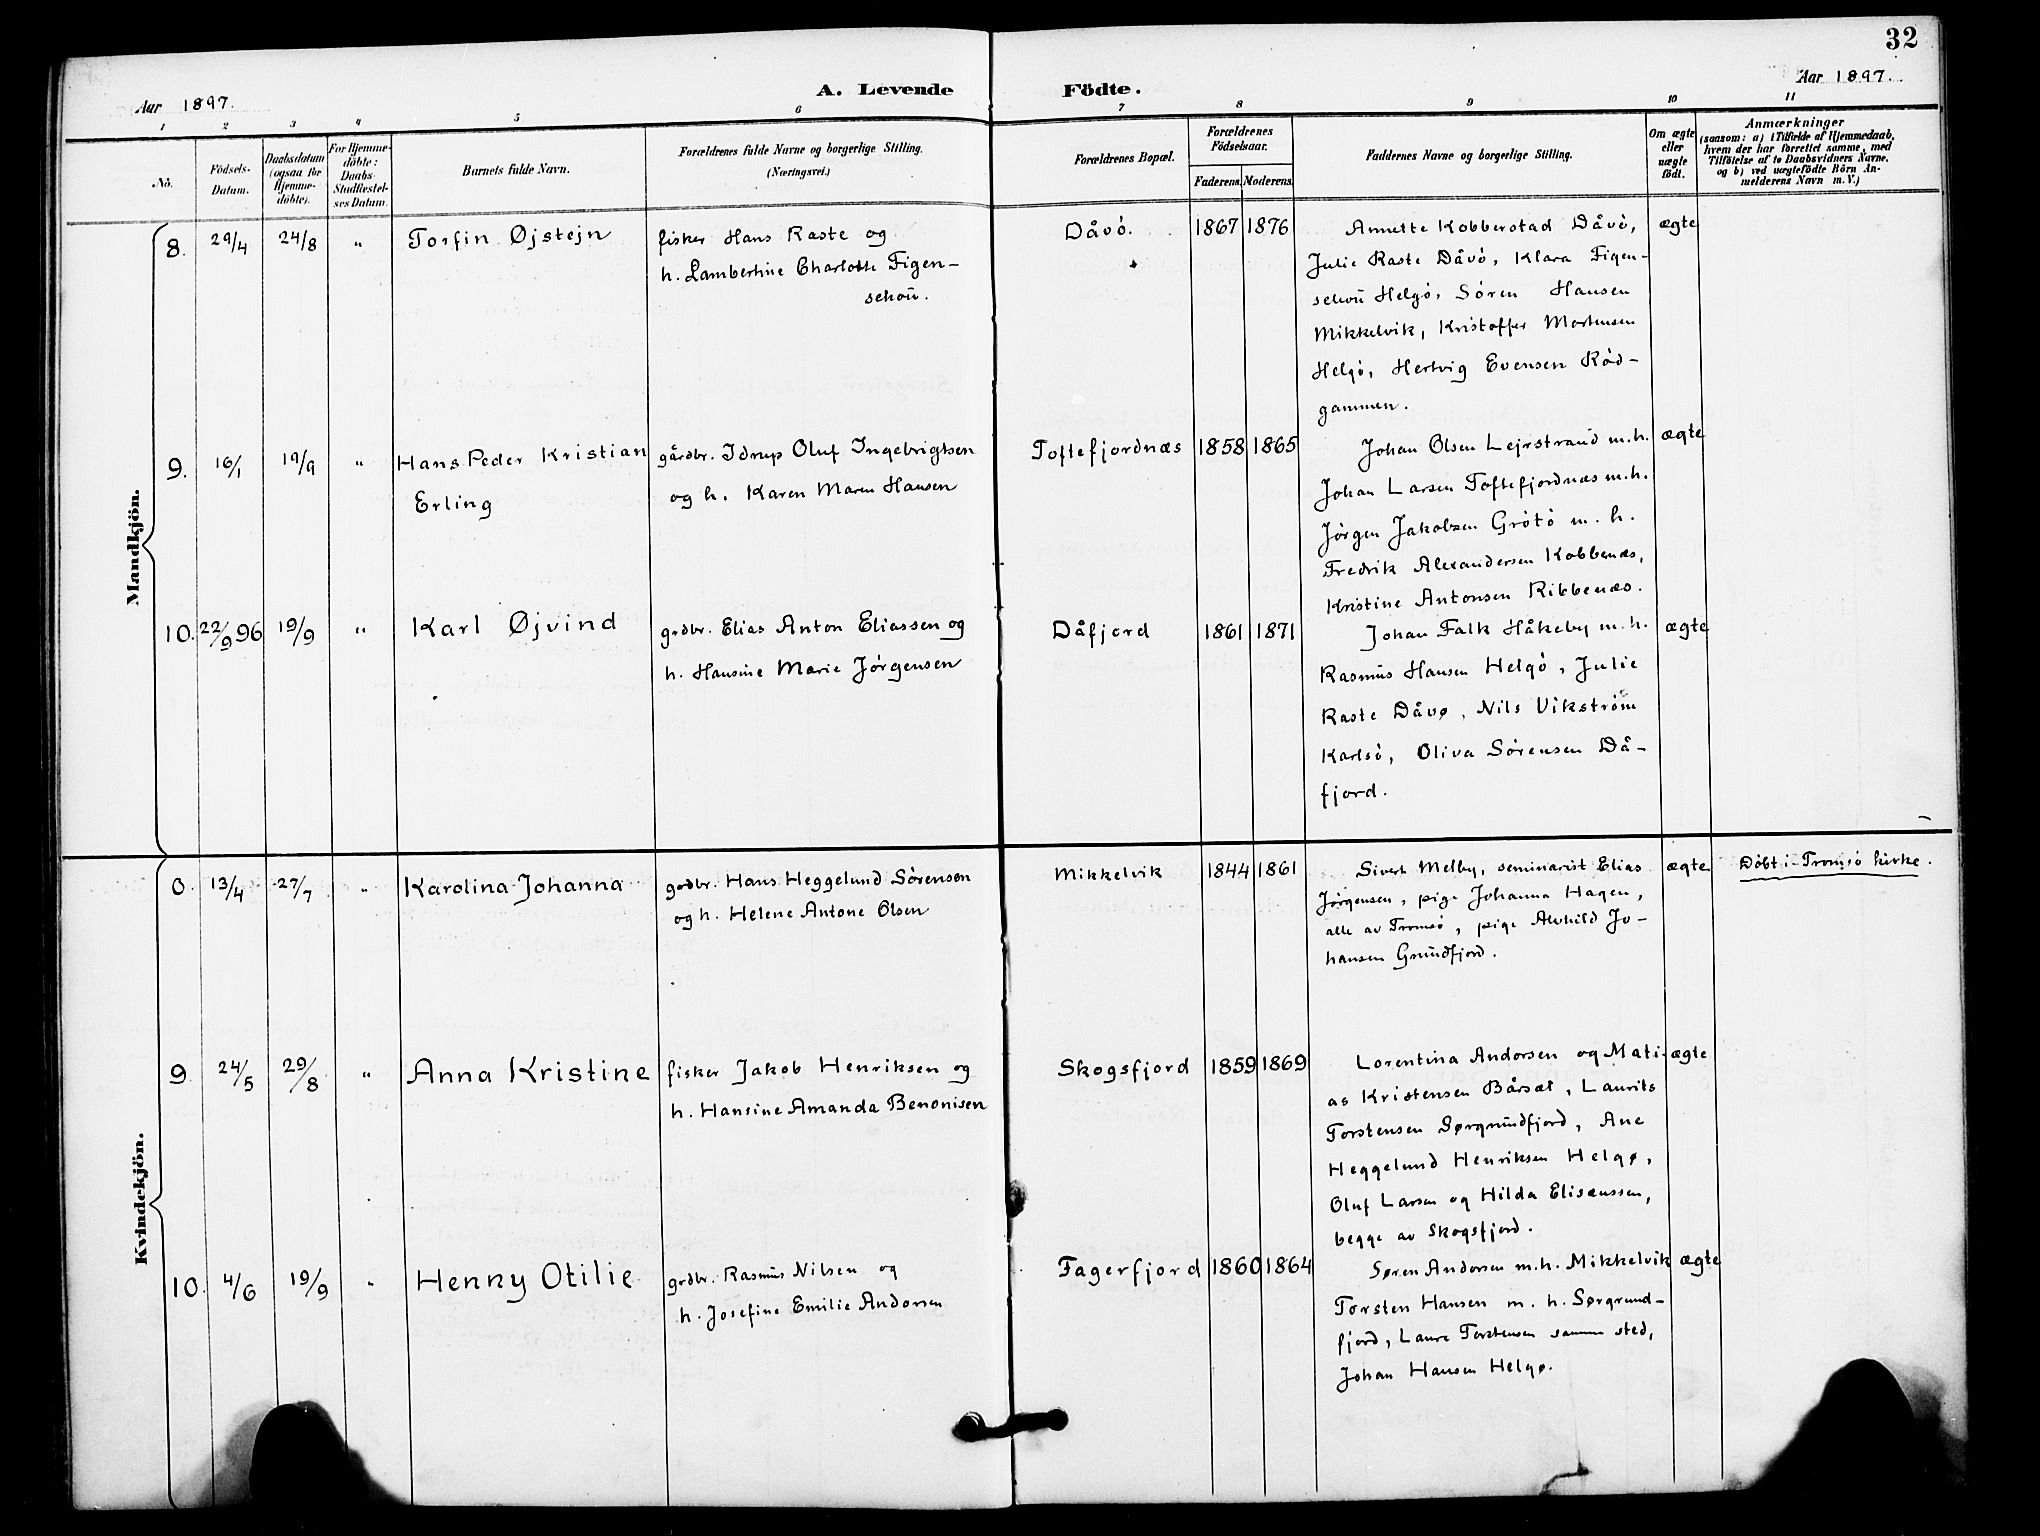 32
Aar 1897.
A. Levende Födte.
Aar 1897.
1 2 3 4 5 6 7 8 9 10 11
No.
Födsels-
Datum.
Daabsdatum
(ogsaa for
Hjemme-
döbte).
For Hjemme-
döbte:
Daabs-
Stadfæstel-
ses Datum.
Barnets fulde Navn.
Forældrenes fulde Navne og borgerlige Stilling.
(Næringsvei.)
Forældrenes Bopæl.
Forældrenes
Födselsaar.
Faderens. Moderens.
Faddernes Navne og borgerlige Stilling.
Om ægte
eller
uægte
födt.
Anmærkninger
(saasom: a) i Tilfælde af Hjemmedaab,
hvem der har forrettet samme, med
Tilföielse af to Daabsvidners Navne.
og b) ved uægtefödte Börn An-
melderens Navn m. V.)
Mandkjön.
8. 29/4 24/8 " Torfin Øjstejn
fisker Hans Raste og
h. Lambertine Charlotte Figen-
schou.
Dåvö. 1867 1876
Annette Kobberstad Dåvö,
Julie Raste Dåvö, Klara Figen-
schou Helgö, Sören Hansen
Mikkelvik, Kristoffer Mortensen
Helgö, Hertvig Evensen Röd-
gammen.
ægte
9. 16/1 19/9 " Hans Peder Kristian
Erling
gårdbr. Idrup Oluf Ingebrigtsen
og h. Karen Maren Hansen
Toftefjordnæs 1858 1865
Johan Olsen Lejrstrand m.h.
Johan Larsen Toftefjordnæs m.h.
Jörgen Jakobsen Grötö m. h.
Fredrik Alexandersen Kobbenæs,
Kristine Antonsen Ribbenæs.
ægte
10. 22/9 96 19/9 " Karl Øjvind
grdbr. Elias Anton Eliassen og
h. Hansine Marie Jörgensen
Dåfjord 1861 1871
Johan Falk Håkeby m.h.
Rasmus Hansen Helgö, Julie
Raste Dåvø, Nils Vikström
Karlsö, Oliva Sörensen Då-
fjord.
ægte
Kvindekjön.
8. 13/4 27/7 " Karolina Johanna
grdbr. Hans Heggelund Sörensen
og h. Helene Antone Olsen
Mikkelvik 1844 1861
Sivert Melby, seminarist Elias
Jörgensen, pige Johanna Hagen,
alle av Tromsö, pige Alvhild Jo-
hansen Grundfjord.
ægte
Döbt i Tromsö kirke.
9. 24/5 29/8 " Anna Kristine
fisker Jakob Henriksen og
h. Hansine Amanda Benonisen
Skogsfjord 1859 1869
Lorentina Andorsen og Mati-
as Kristensen Bårsæt, Laurits
Torstensen Sørgrundfjord, Ane
Heggelund Henriksen Helgø,
Oluf Larsen og Hilda Elisæussen,
begge av Skogsfjord.
ægte
10. 4/6 19/9 " Henny Otilie
grdbr. Rasmus Nilsen og
h. Josefine Emilie Andorsen
Fagerfjord 1860 1864
Søren Andorsen m.h. Mikkelvik
Torsten Hansen m. h. Sørgrund-
fjord, Laura Torstensen samme sted,
Johan Hansen Helgø.
ægte